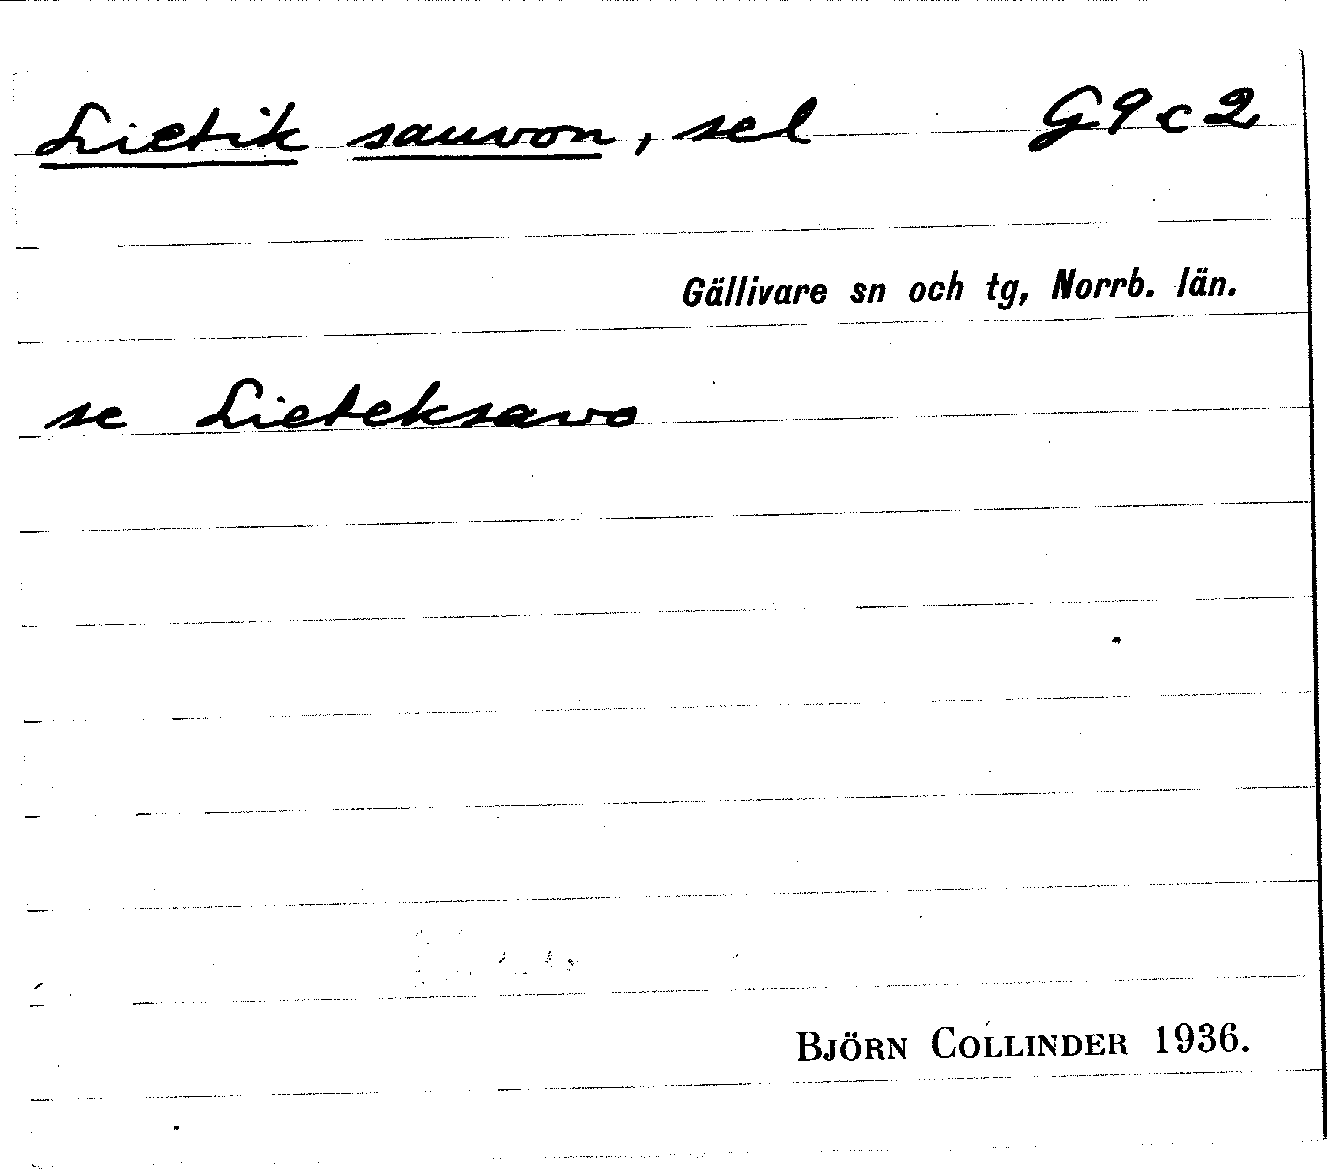 Lietik sauvon, sel G9c2
Gällivare sn och tg, Norrb. län.
se Lieteksavo
BJÖRN COLLINDER 1936.